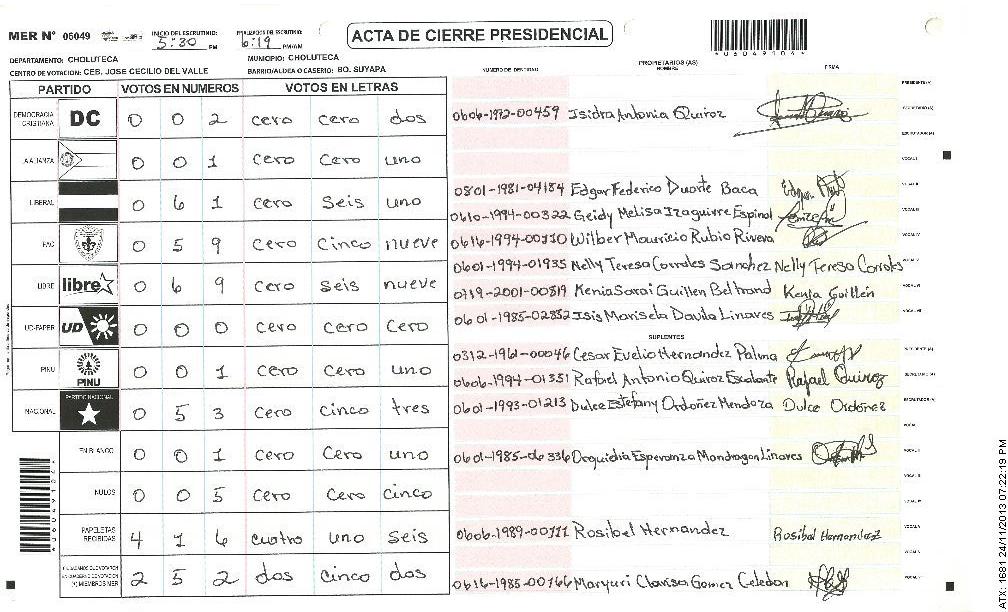 MER N° 06049
INICIO DEL ESCRUTINIO: 5:30 PM
6:19 PM/AM
ACTA DE CIERRE PRESIDENCIAL
*06049104*
DEPARTAMENTO: CHOLUTECA
MUNICIPIO: CHOLUTECA
CENTRO DE VOTACION: CEB. JOSE CECILIO DEL VALLE
BARRIO/ALDEA O CASERIO: BO. SUYAPA
NUMERO DE IDENTIDAD
PROPIETARIOS (AS)
NOMBRE
FIRMA
PARTIDO VOTOS EN NUMEROS VOTOS EN LETRAS
DEMOCRACIA CRISTIANA DC 0 0 2 cero cero dos
ALIANZA 0 0 1 cero cero uno
LIBERAL 0 6 1 cero seis uno
PAC 0 5 9 cero cinco nueve
LIBRE libre 0 6 9 cero seis nueve
UD-FAPER UD 0 0 0 cero cero cero
PINU PINU 0 0 1 cero cero uno
NACIONAL PARTIDO NACIONAL 0 5 3 cero cinco tres
EN BLANCO 0 0 1 cero cero uno
NULOS 0 0 5 cero cero cinco
PAPELETAS RECIBIDAS 4 1 6 cuatro uno seis
2 5 2 dos cinco dos
PRESIDENTE(A)
0606-1972-00459 Isidra Antonia Quiroz SECRETARIO(A)
ESCRUTADOR(A)
VOCAL I
0801-1981-04184 Edgar Federico Duarte Baca VOCAL II
0610-1994-00322 Geidy Melisa Izaguirre Espinal VOCAL III
0616-1994-00110 Wilber Mauricio Rubio Rivera VOCAL IV
0601-1994-01935 Nelly Teresa Corrales Sanchez Nelly Teresa Corrales VOCAL V
0719-2001-00819 Kenia Sarai Guillen Beltrand Kenia Guillén VOCAL VI
0601-1985-02852 Isis Marisela Davila Linares VOCAL VII
SUPLENTES
0312-1961-00046 Cesar Evelio Hernandez Palma PRESIDENTE (A)
0606-1994-01351 Rafael Antonio Quiroz Escalante Rafael Quiroz SECRETARIO(A)
0601-1993-01213 Dulce Estefany Ordoñez Mendoza Dulce Ordónez ESCRUTADOR(A)
VOCAL I
0601-1985-00336 Orquidia Esperanza Mondragon Linares VOCAL II
0606-1989-00111 Rosibel Hernandez Rosibel Hernandez
0616-1985-00166 Maryuri Clarisa Gomez Celedon
ATX: 1681 24/11/2013 07:22:19 PM